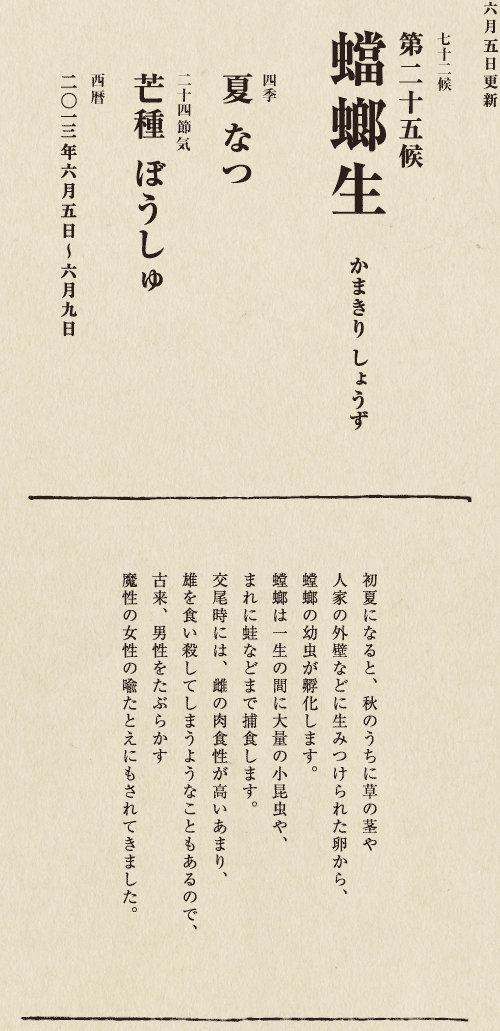 六月五日更新
七十二候
第二十五候
蟷螂生 かまきり しょうず
四季
夏 なつ
二十四節気
芒種 ぼうしゅ
西暦
二〇一三年六月五日〜六月九日
初夏になると、秋のうちに草の茎や
人家の外壁などに生みつけられた卵から、
螳螂の幼虫が孵化します。
螳螂は一生の間に大量の小昆虫や、
まれに蛙などまで捕食します。
交尾時には、雌の肉食性が高いあまり、
雄を食い殺してしまうようなこともあるので、
古来、男性をたぶらかす
魔性の女性の喩たとえにもされてきました。